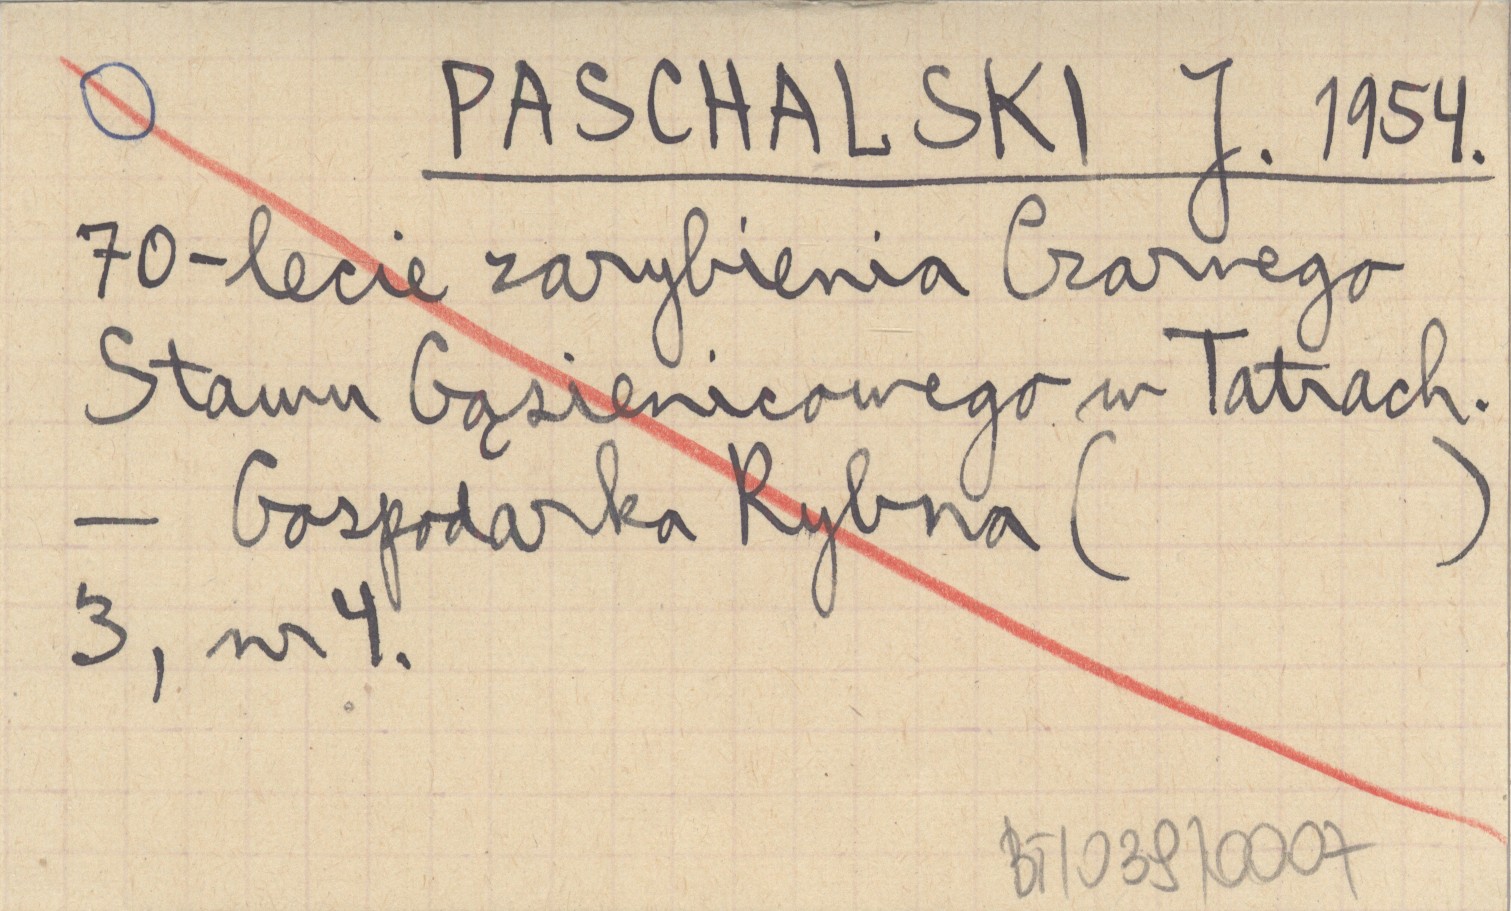 PASCHALSKI J. 1954.
70-lecie zarybienia Czarnego
Stawu Gąsienicowego w Tatrach.
— Gospodarka Rybna ( )
3, nr 4.
BT/039/0007